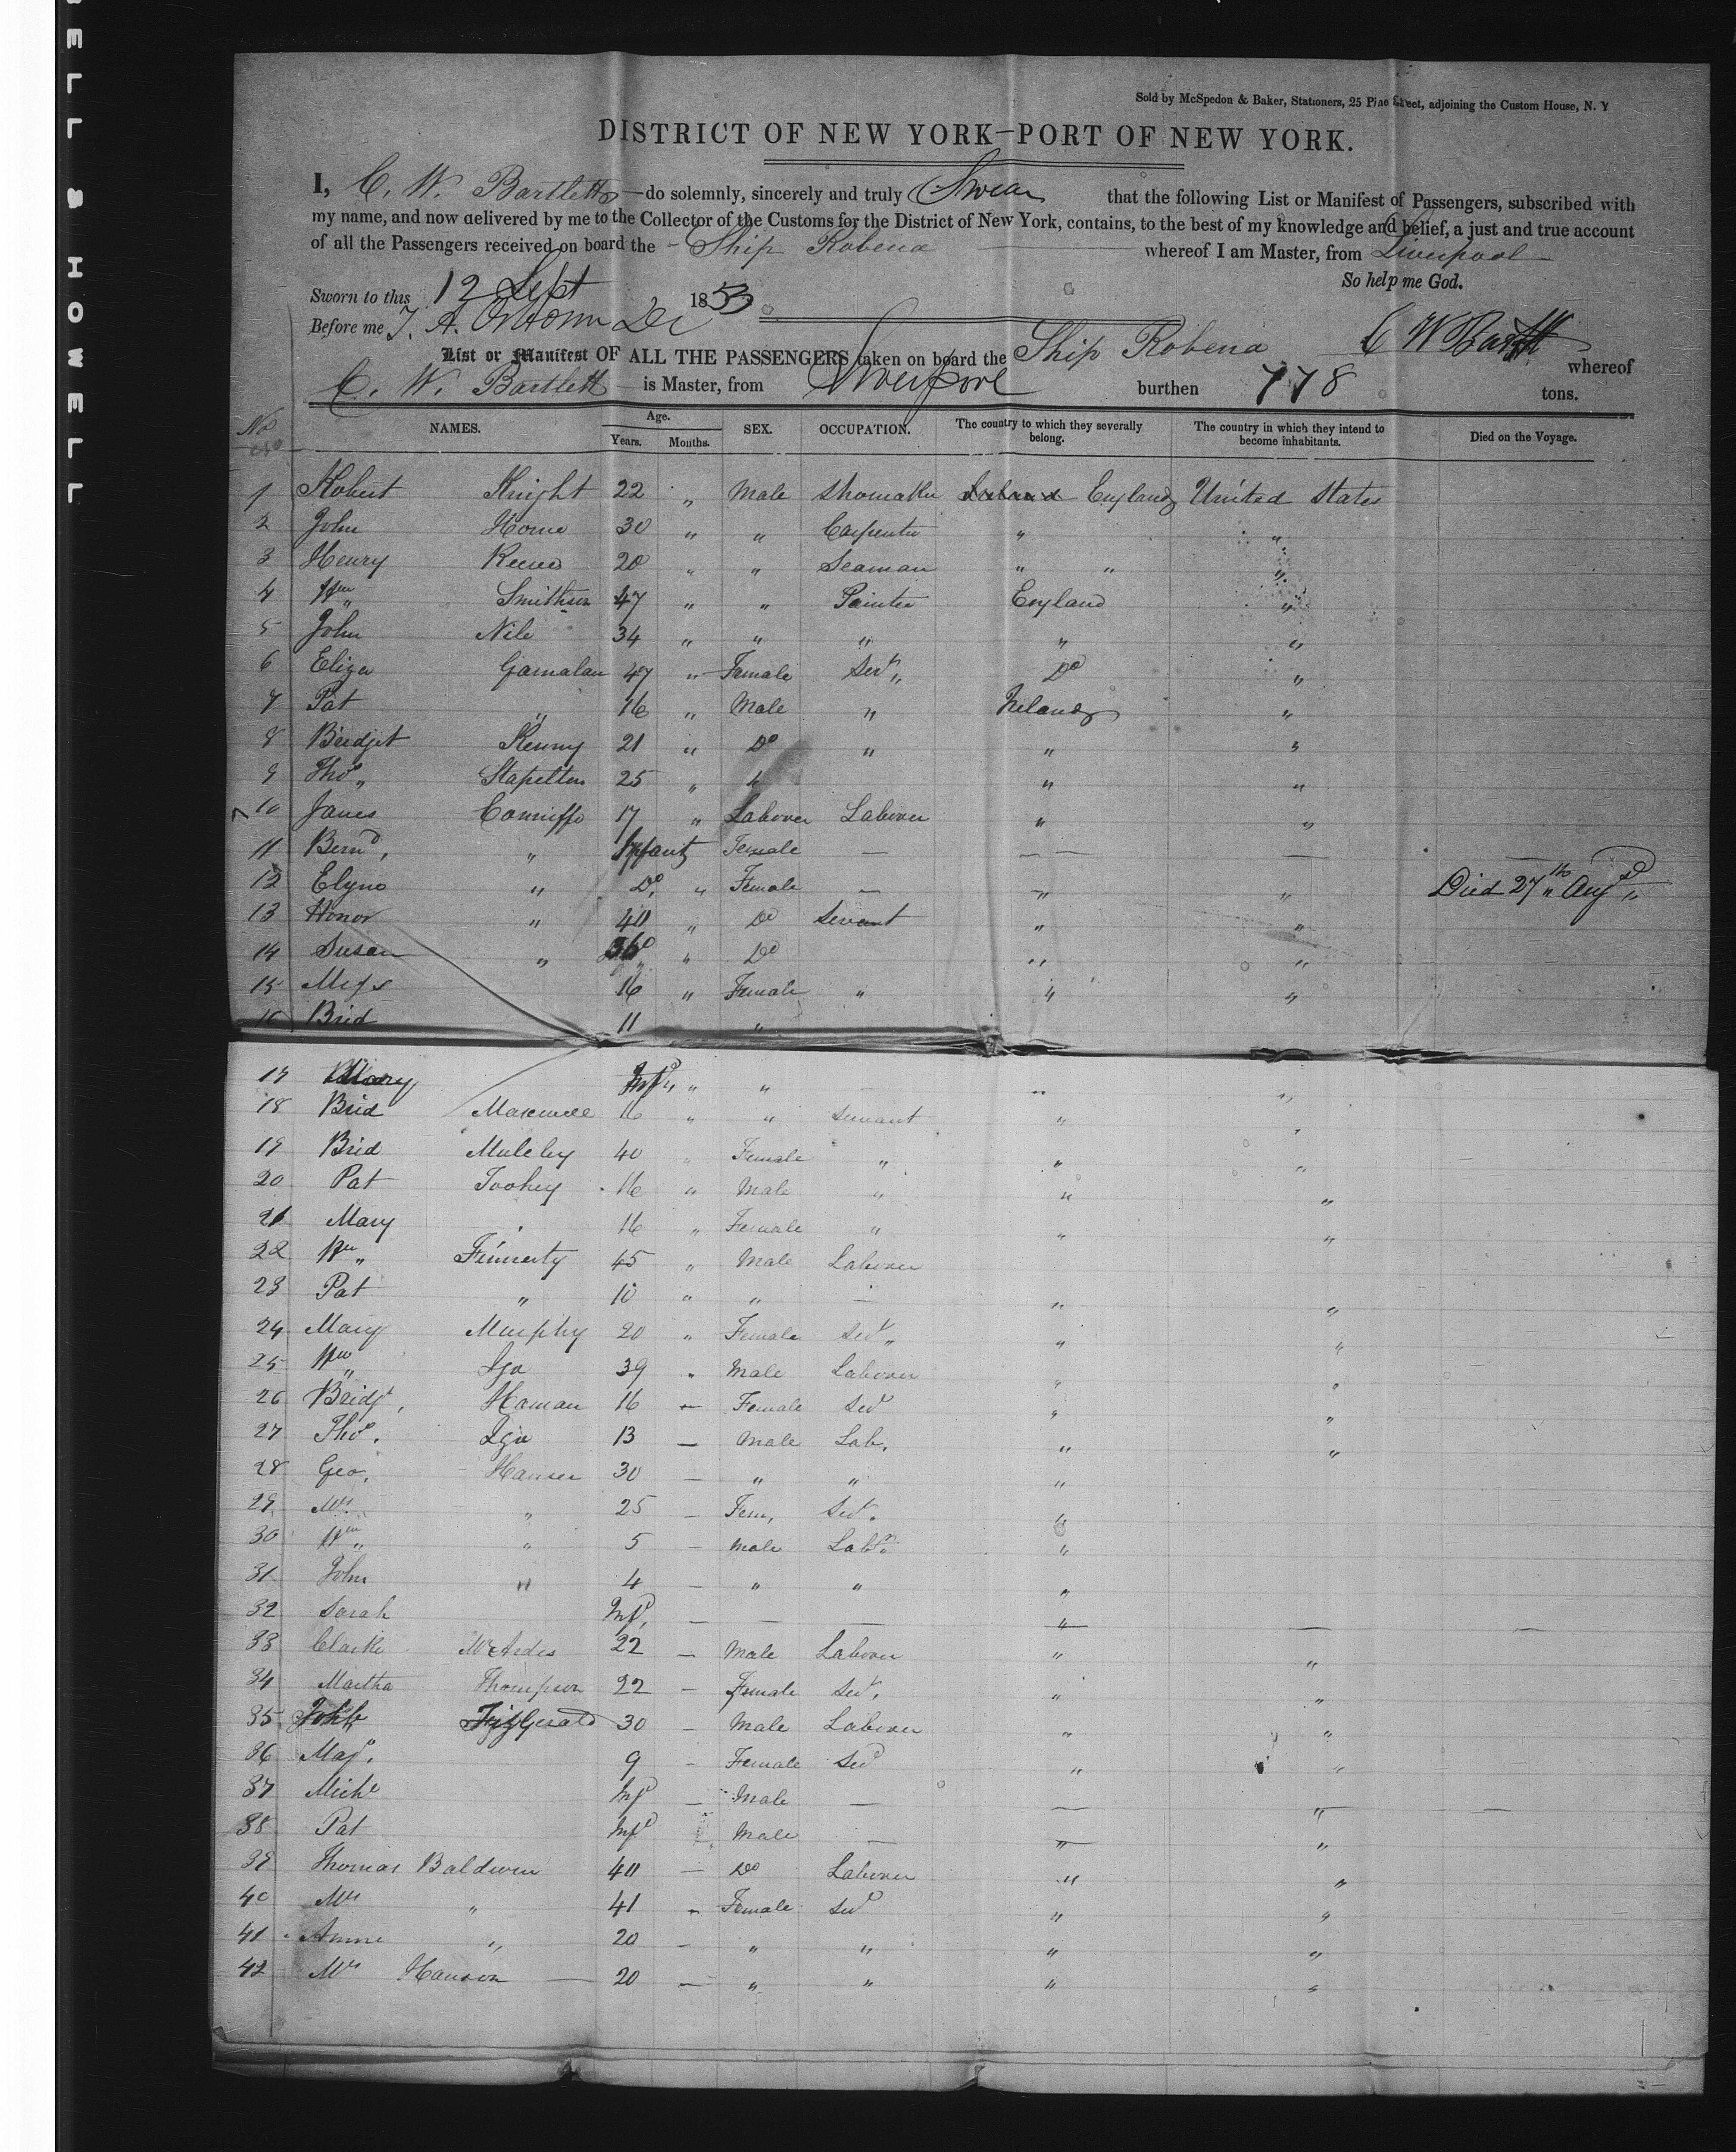 BELL & HOWELL
Sold by McSpedon & Baker, Stationers, 25 Pine Street, adjoining the Custom House, N. Y
DISTRICT OF NEW YORK—PORT OF NEW YORK.
I, C. W. Bartlett do solemnly, sincerely and truly Swear that the following List or Manifest of Passengers, subscribed with
my name, and now delivered by me to the Collector of the Customs for the District of New York, contains, to the best of my knowledge and belief, a just and true account
of all the Passengers received on board the Ship Robena whereof I am Master, from Liverpool
So help me God.
Sworn to this 12 Sept 1853
Before me C W Bartlett
List or Manifest OF ALL THE PASSENGERS taken on board the Ship Robena whereof
C. W. Bartlett is Master, from Liverpool burthen 778 tons.
No NAMES. Age. Years. Months. SEX. OCCUPATION. The country to which they severally belong. The country in which they intend to become inhabitants. Died on the Voyage.
1 Robert Knight 22 " Male Shomaker Ireland England United States
2 John Horne 30 " " Carpenter " "
3 Henry 20 " " Seaman " " "
4 Wm " Smithson 47 " " Painter England "
5 John Nile 34 " " " " "
6 Eliza Gamalan 47 " Female Servt " Do "
7 Pat " 16 " Male " Ireland "
8 Bridget Kenny 21 " Do " " "
9 Thos " Stapelton 25 " " " "
10 James Conniffe 17 " Laborer Laborer " "
11 Bernd, " Infant Female — — — — —
12 " Do, " Female — " " Died 27th " Augd "
13 Honor " 40 " Do Servant " "
14 Susan " " Do " "
15 16 " Female " " "
16 Brid 11 "
17 Mary Infd " " " — " "
18 Brid Maxwell 16 " " Servant " "
19 Brid 40 " Female " " "
20 Pat Toohey 16 " Male " " "
21 Mary " 16 " Female " " "
22 Wm " Finnerty 45 " Male Laborer
23 Pat " 10 " " — " "
24 Mary Murphy 20 " Female Servt " " "
25 Wm " Igo 39 " Male Laborer " "
26 Bridgt, 16 — Female Servt " "
27 Thos. Igo 13 — Male Lab. " "
28 Geo. 30 — " " "
29 Mrs " 25 — Fem, Servt. "
30 Wm " " 5 — Male Labr "
31 John " 4 — " " "
32 Sarah Infd, — — — " — —
33 Clarke 22 — Male Laborer " "
34 Martha Thompson 22 — Female Servt. " "
35 FitzGerald 30 — Male Laborer " "
36 9 — Female Servt " "
37 Michl Infd — Male — — " —
38 Pat Infd Male — " "
39 Thomas Baldwin 40 — Do Laborer " "
40 Mrs " 41 — Female Servt " "
41 Anne " 20 — " " " "
42 Mrs Hanson — 20 — " " " "